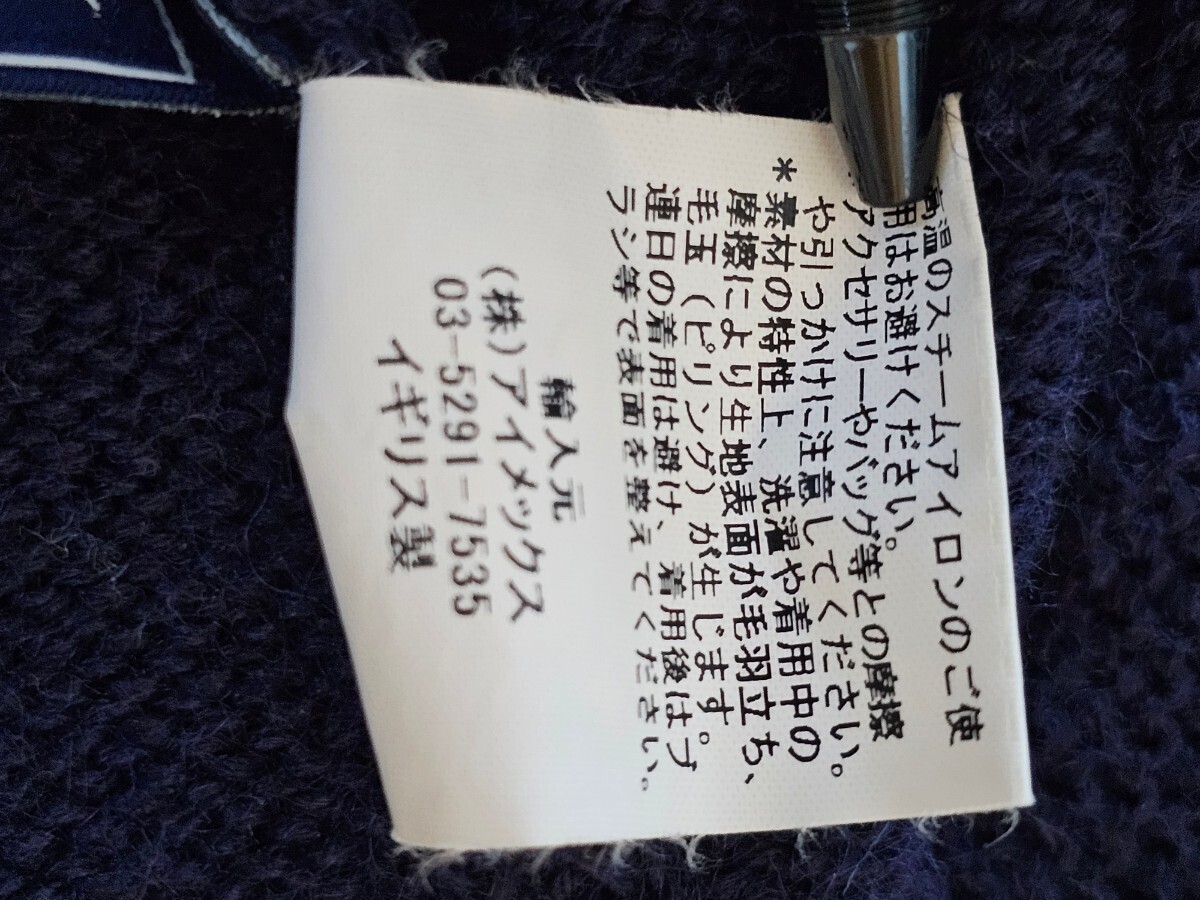 高温のスチームアイロンのご使
用はお避けください。
アクセサリーやバッグ等との摩擦
や引っかけに注意してください。
*素材の特性上、洗濯や着用中の
摩擦により生地表面が毛羽立ち、
毛玉(ピリング)が生じます。
連日の着用は避け、着用後はブ
ラシ等で表面を整えてください。
輸入元
(株)アイメックス
03-5291-7535
イギリス製